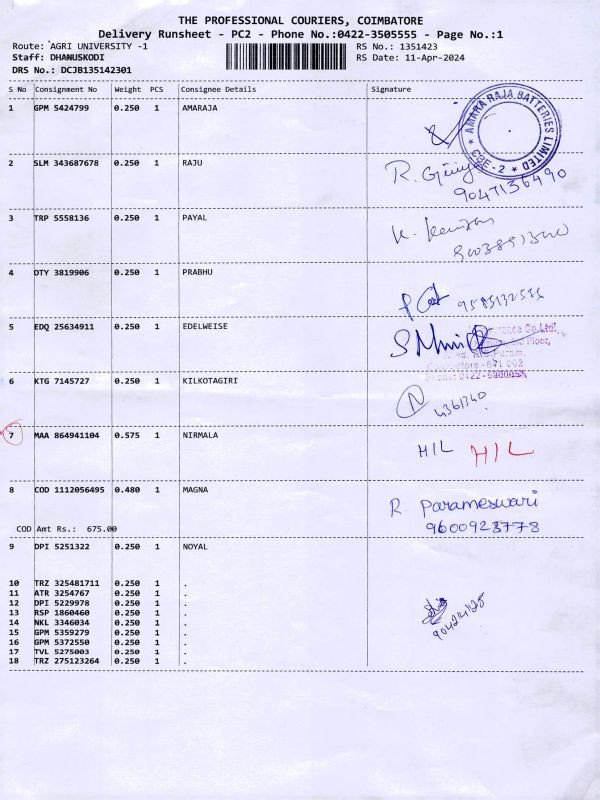 THE PROFESSIONAL COURIERS, COIMBATORE
Delivery Runsheet - PC2 - Phone No.:0422-3505555 - Page No.:1
Route: AGRI UNIVERSITY -1 RS No.: 1351423
Staff: DHANUSKODI RS Date: 11-Apr-2024
DRS No.: DCJB135142301
S No Consignment No Weight PCS Consignee Details Signature
1 GPM 5424799 0.250 1 AMARAJA
AMARA RAJA BATTERIES LIMITED
CBE - 2
2 SLM 343687678 0.250 1 RAJU
R.
9047136490
3 TRP 5558136 0.250 1 PAYAL
K.
4 OTY 3819906 0.250 1 PRABHU
5 EDQ 25634911 0.250 1 EDELWEISE
Co.Ltd.
Floor,
Puram,
641 002
6 KTG 7145727 0.250 1 KILKOTAGIRI
7 MAA 864941104 0.575 1 NIRMALA
H/L H/L
8 COD 1112056495 0.480 1 MAGNA
R. Parameswari
COD Amt Rs.: 675.00
9600923778
9 DPI 5251322 0.250 1 NOYAL
10 TRZ 325481711 0.250 1 .
11 ATR 3254767 0.250 1 .
12 DPI 5229978 0.250 1 .
13 RSP 1860460 0.250 1 .
14 NKL 3346034 0.250 1 .
15 GPM 5359279 0.250 1 .
16 GPM 5372550 0.250 1 .
17 TVL 5275003 0.250 1 .
18 TRZ 275123264 0.250 1 .